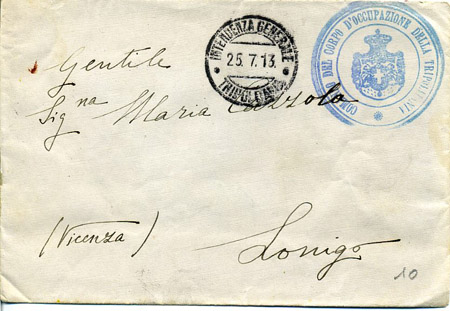 INTENDENZA GENERALE
25.7.13.
DEL CORPO D'OCCUPAZIONE DELLA TRIPOLITANIA
Gentile
Sig na Maria
(Vicenza) Lonigo
10